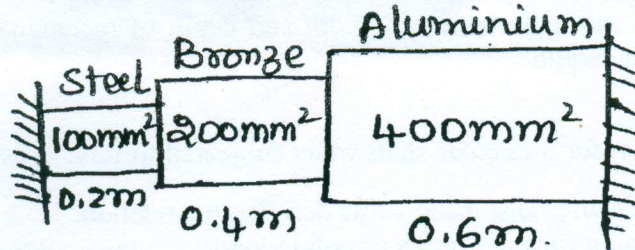 Steel
Bronze
Aluminium
100mm²
200mm²
400mm²
0.2m
0.4m
0.6m.